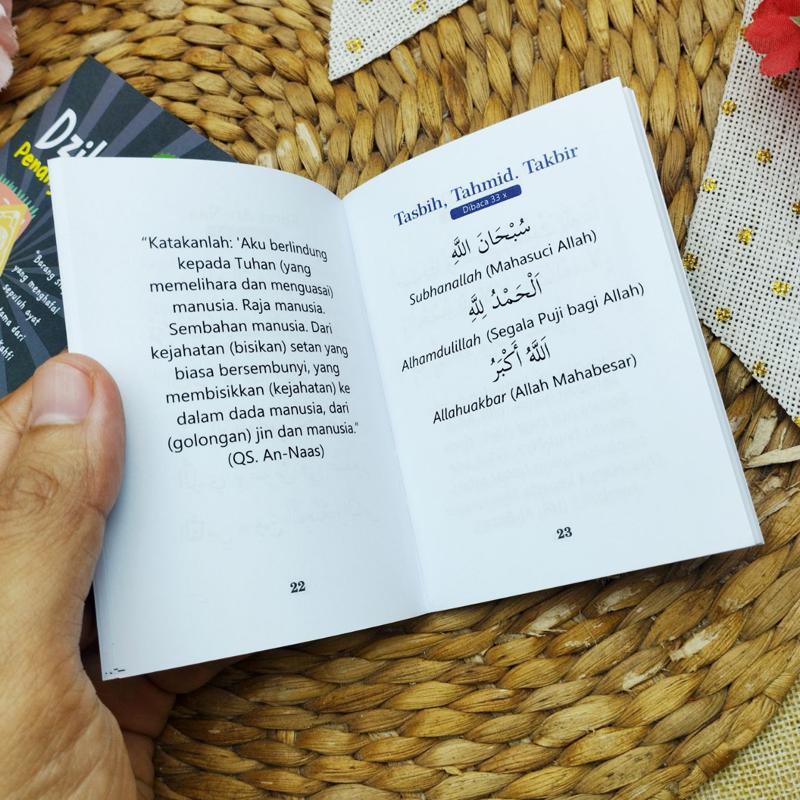 "Barang si
yang menghafal
sepuluh ayat
"Katakanlah: 'Aku berlindung
kepada Tuhan (yang
memelihara dan menguasai)
manusia. Raja manusia.
Sembahan manusia. Dari
kejahatan (bisikan) setan yang
biasa bersembunyi, yang
membisikkan (kejahatan) ke
dalam dada manusia, dari
(golongan) jin dan manusia."
(QS. An-Naas)
22
Tasbih, Tahmid. Takbir
Dibaca 33 x
سُبْحَانَ اللَّهِ
Subhanallah (Mahasuci Allah)
اَلْحَمْدُ لِلَّهِ
Alhamdulillah (Segala Puji bagi Allah)
اَللَّهُ أَكْبَرُ
Allahuakbar (Allah Mahabesar)
23